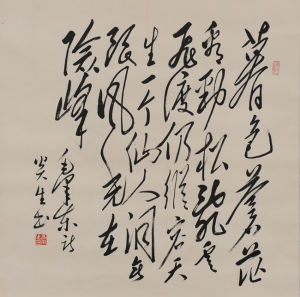 暮色蒼茫
看勁松乱雲
飛渡仍從容天
生一个仙人洞無
限风光在
險峰
毛澤東詩
炎生书